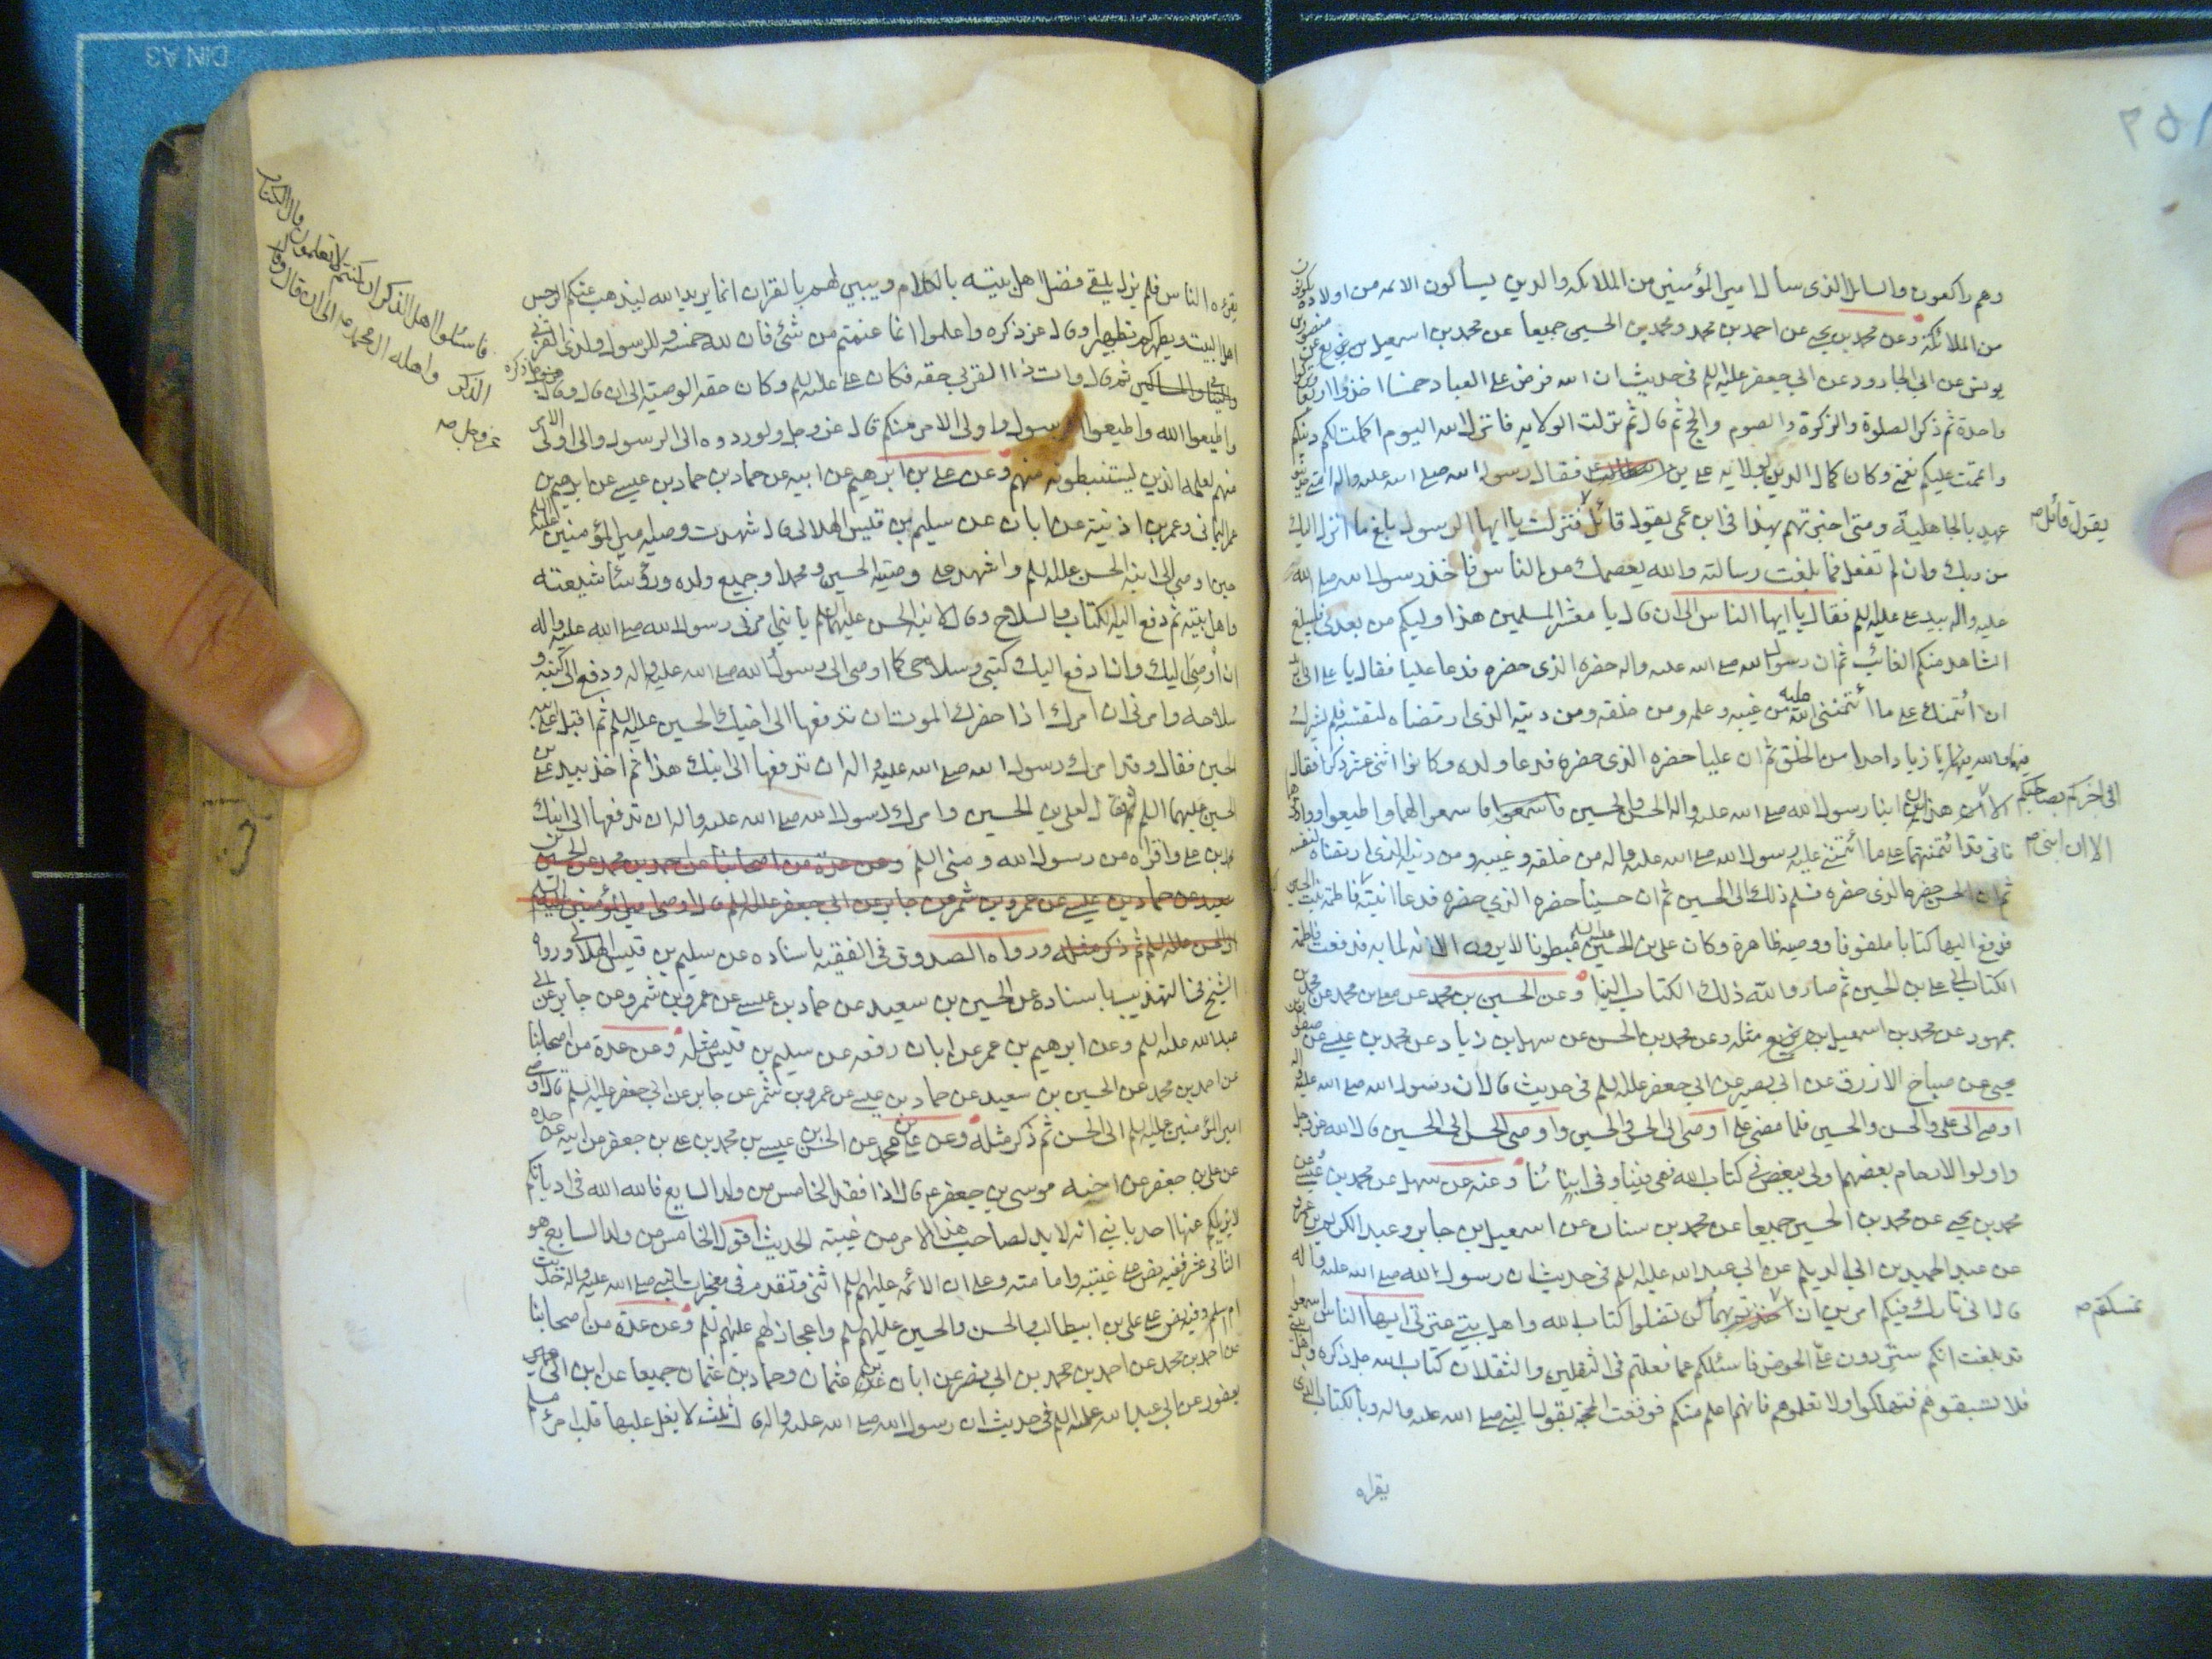 وهم راكعون والسائل الذى سأل امير المؤمنين من الملائكة والذين يسألون الائمه من اولاده يكونون
من الملائكة وعن محمد بن يحيى عن احمد بن محمد ومحمد بن الحسين جميعا عن محمد بن اسمعيل بن بزيع عن منصور بن
يونس عن ابى الجارود عن ابى جعفر عليه السلم فى حديث ان الله فرض على العباد خمسا اخذوا اربعا
واحدة ثم ذكر الصلوة والزكوة والصوم والحج ثم قال ثم نزلت الولايه فانزل الله اليوم اكملت لكم دينكم
واتممت عليكم نعمتى وكان كمال الدين بولاية على بن ابيطالب فقال رسول الله صلى الله عليه واله امتى حديثو
عهد بالجاهلية ومتى اخبرتهم بهذا فى ابن عمى يقول قائل فنزلت يا ايها الرسول بلغ ما انزل اليك
يقول قائل صح
من ربك وان لم تفعل فما بلغت رسالته والله يعصمك من الناس فاخذ رسول الله صلى الله
عليه واله بيد على عليه السلم فقال يا ايها الناس الى ان قال يا معشر المسلمين هذا وليكم من بعدى فليبلغ
الشاهد منكم الغائب ثم ان رسول الله صلى الله عليه واله حضره الذى حضره فدعا عليا فقال يا على انى اريد
ان أئتمنك على ما أئتمننى الله عليه من غيبه وعلمه ومن خلقه ومن دينه الذى ارتضاه لنفسه فلم يشرك
فيها والله يا زياد احدا من الخلق ثم ان عليا حضره الذى حضره فدعا ولده وكانوا اثنى عشر ذكرا فقال
انى اخبركم بصاحبكم
الا ان هذين ابنا رسول الله صلى الله عليه واله الحسن والحسين فاسمعوا لهما واطيعوا ووازروهما
الا ان ابنى صح
فانى قد ائتمنتهما على ما ائتمننى عليه رسول الله صلى الله عليه واله من خلقه وغيبه ومن دينه الذى ارتضاه لنفسه
ثم ان الحسن حضره الذى حضره فسلم ذلك الى الحسين ثم ان حسينا حضره الذى حضره فدعا ابنته فاطمة بنت الحسين
فدفع اليها كتابا ملفوفا ووصية ظاهرة وكان على بن الحسين عليه السلم مبطونا لا يرون الا انه لما به فدفعت فاطمة
الكتاب الى على بن الحسين ثم صار والله ذلك الكتاب الينا وعن الحسين بن محمد عن معلى بن محمد عن محمد بن
جمهور عن محمد بن اسمعيل بن بزيع مثله وعن محمد بن الحسن عن سهل بن زياد عن محمد بن عيسى عن صفوان بن
يحيى عن صباح الازرق عن ابى بصير عن ابى جعفر عليه السلم فى حديث قال ان رسول الله صلى الله عليه واله
اوصى الى على والحسن والحسين فلما مضى على اوصى الى الحسن والحسين واوصى الحسن الى الحسين قال الله عز وجل
واولوا الارحام بعضهم اولى ببعض فى كتاب الله فهى فينا وفى ابنائنا وعنه عن سهل عن محمد بن عيسى وعن
محمد بن يحيى عن محمد بن الحسين جميعا عن محمد بن سنان عن اسمعيل بن جابر وعبد الكريم بن عمرو
عن عبد الحميد بن ابى الديلم عن ابى عبد الله عليه السلم فى حديث ان رسول الله صلى الله عليه واله
قال انى تارك فيكم امرين ان اخذتم بهما لن تضلوا كتاب الله واهل بيتى عترتى ايها الناس اسمعوا
تمسكتم صح
قد بلغت انكم ستردون على الحوض فاسئلكم عما فعلتم فى الثقلين والثقلان كتاب الله جل ذكره واهل بيتى
فلا تسبقوهم فتهلكوا ولا تعلموهم فانهم اعلم منكم فوقعت الحجة بقول النبى صلى الله عليه واله وبالكتاب الذى
يقرأه
يقرءه الناس فلم يزل يلقى فضل اهل بيته بالكلام ويبين لهم بالقران انما يريد الله ليذهب عنكم الرجس
اهل البيت ويطهركم تطهيرا وقال عز ذكره واعلموا انما غنمتم من شئ فان لله خمسه وللرسول ولذى القربى
واليتامى والمساكين ثم قال وات ذا القربى حقه فكان على عليه السلم وكان حقه الوصية الى ان قال وقال
فاسئلوا اهل الذكر ان كنتم لا تعلمون قال الكتاب
الذكر واهله آل محمد صه الى ان قال وقال
عز وجل صه
واطيعوا الله واطيعوا الرسول واولى الامر منكم قال عز وجل ولو ردوه الى الرسول والى اولى الامر
منهم لعلمه الذين يستنبطونه منهم وعن على بن ابرهيم عن ابيه عن حماد بن عيسى عن ابرهيم بن
عمر اليمانى وعمر بن اذينة عن ابان عن سليم بن قيس الهلالى قال شهدت وصية امير المؤمنين عليه السلم
حين اوصى الى ابنه الحسن عليه السلم واشهد على وصيته الحسين ومحمدا وجميع ولده ورؤسأ شيعته
واهل بيته ثم دفع اليه الكتاب والسلاح وقال لابنه الحسن عليهما السلم يا بنى امرنى رسول الله صلى الله عليه واله
ان أوصى اليك وان ادفع اليك كتبى وسلاحى كما اوصى الى رسول الله صلى الله عليه واله ودفع الى كتبه و
سلاحه وامرنى ان امرك اذا حضرك الموت ان تدفعها الى اخيك الحسين عليه السلم ثم اقبل على ابنه
الحسين فقال وقد امرك رسول الله صلى الله عليه واله ان تدفعها الى ابنك هذا ثم اخذ بيد على بن
الحسين عليهما السلم ثم قال لعلى بن الحسين وامرك رسول الله صلى الله عليه واله ان تدفعها الى ابنك
محمد بن على واقرأه من رسول الله ومنى السلم وعن عدة من اصحابنا عن احمد بن محمد عن الحسين بن
سعيد عن حماد بن عيسى عن عمرو بن شمر عن جابر عن ابى جعفر عليه السلم قال اوصى امير المؤمنين عليه السلم
الى الحسن عليه السلم ثم ذكر مثله ورواه الصدوق فى الفقيه باسناده عن سليم بن قيس الهلالى ورواه
الشيخ فى التهذيب باسناده عن الحسين بن سعيد عن حماد بن عيسى عن عمرو بن شمر وعن جابر عن ابى
عبد الله عليه السلم وعن ابرهيم بن عمر عن ابان رفعه عن سليم بن قيس مثله وعن عدة من اصحابنا
عن احمد بن محمد عن الحسين بن سعيد عن حماد بن عيسى عن عمرو بن شمر عن جابر عن ابى جعفر عليه السلم قال اوصى
امير المؤمنين عليه السلم الى الحسن ثم ذكر مثله وعن على بن محمد عن الحسن بن عيسى بن محمد بن على بن جعفر عن ابيه عن جده
عن على بن جعفر عن اخيه موسى بن جعفر ع قال اذا فقد الخامس من ولد السابع فالله الله فى اديانكم
لا يزيلكم عنها احد يا بنى انه لا بد لصاحب هذا الامر من غيبته الحديث اقول الخامس من ولد السابع هو
الثانى عشر ففيه نص على غيبته وامامته وعلى ان الائمة عليهم السلم اثنى وتقدم فى معجزات النبى صلى الله عليه واله حديث
ام اسلم وفيه نص على على بن ابيطالب والحسن والحسين عليهم السلم واعجاز لهم عليهم السلم وعن عدة من اصحابنا
عن احمد بن محمد عن احمد بن محمد بن ابى نصر عن ابان بن عثمان وحماد بن عثمان جميعا عن ابن ابى
يعفور عن ابى عبد الله عليه السلم فى حديث ان رسول الله صلى الله عليه واله قال ثلث لا يغل عليها قلب امرئ مسلم